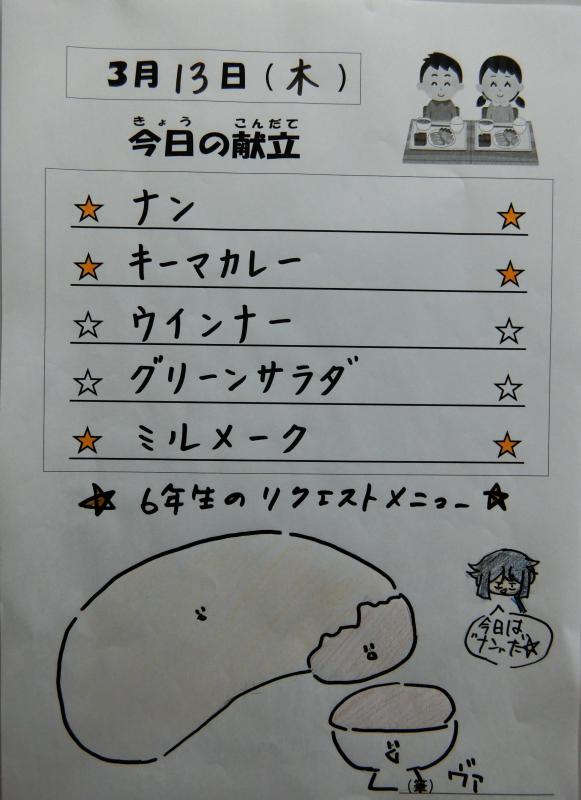 3月13日(木)
きょう こんだて
今日の献立
☆ ナン ☆
☆ キーマカレー ☆
☆ ウインナー ☆
☆ グリーンサラダ ☆
☆ ミルメーク ☆
☆ 6年生のリクエストメニュー ☆
今日は、
"ナン"だ☆
(筆) ヴァ